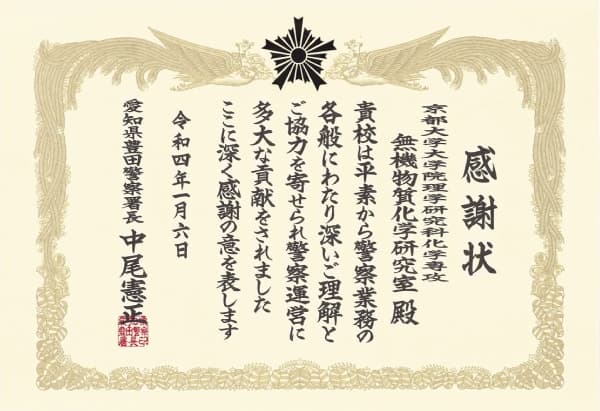 感謝状
京都大学大学院理学研究科化学専攻
無機物質化学研究室 殿
貴校は平素から警察業務の
各般にわたり深いご理解と
ご協力を寄せられ警察運営に
多大な貢献をされました
ここに深く感謝の意を表します
令和四年一月六日
愛知県豊田警察署長 中尾憲正